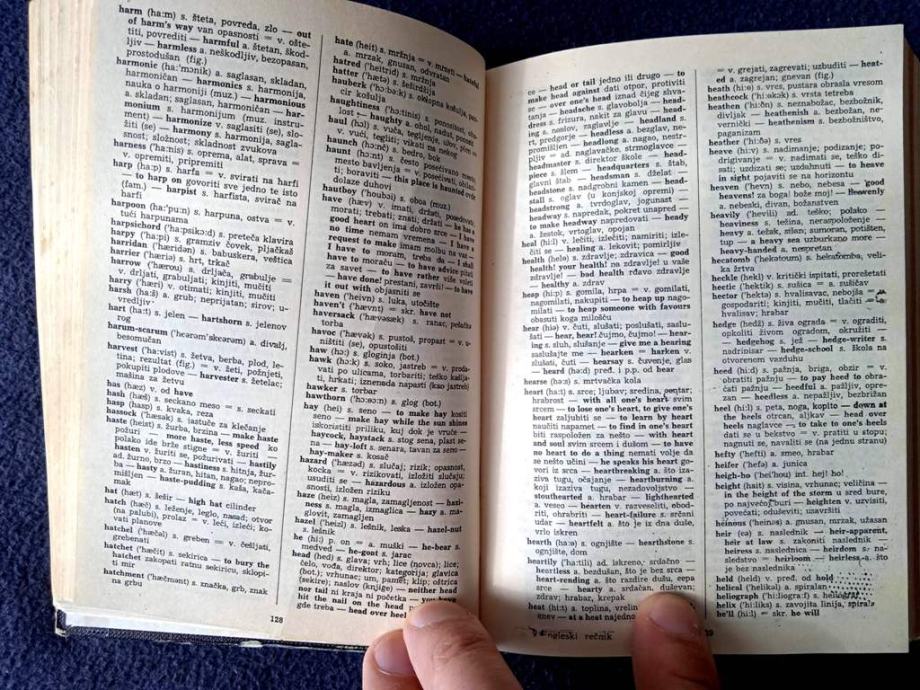 harm (ha:m) s. šteta, povreda, zlo — out
of harm's way van opasnosti = v. ošte-
titi, povrediti — harmful a. štetan, škod-
ljiv — harmless a. neškodljiv, bezopasan,
prostodušan (fig.)
harmonic (ha:'mɔnik) a. saglasan, skladan,
harmoničan — harmonics s. harmonija,
nauka o harmoniji (muz.) — harmonious
a. skladan; saglasan, harmoničan — har-
monium s. harmonijum (muz. instru-
ment) — harmonize v. saglasiti (se), slo-
žiti (se) — harmony s. harmonija, sagla-
snost; složnost; skladnost zvukova
harness ('ha:nis) s. oprema, alat, sprava =
v. opremiti, pripremiti
harp (ha:p) s. harfa = v. svirati na harfi
— to harp on govoriti sve jedno te isto
(fam.) — harpist s. harfista, svirač na
harfi
harpoon (ha:'pu:n) s. harpuna, ostva = v.
tući harpunama
harpsichord ('ha:psikɔ:d) s. preteča klavira
harpy ('ha:pi) s. gramziv čovek, pljačkaš
harridan ('hæridən) s. babuskera, veštica
harrier ('hæriə) s. hrt, trkač
harrow ('hærou) s. drljača, grabulje =
v. drljati, grabuljati; kinjiti, mučiti
harry ('hæri) v. otimati; kinjiti, mučiti
harsh (ha:š) a. grub; neprijatan; sirov; u-
vredljiv
hart (ha:t) s. jelen — hartshorn s. jelenov
rog
harum-scarum ('heərəm'skeərəm) a. divalj,
besomučan
harvest ('ha:vist) s. žetva, berba, plod, le-
tina; rezultat (fig.) = v. žeti, požnjeti,
pokupiti plodove — harvester s. žetelac;
mašina za žetvu
has (hæz) v. od have
hash (hæš) s. seckano meso = v. seckati
hasp (hasp) s. kvaka, reza
hassock ('hæsək) s. jastuče za klečanje
haste (heist) s. žurba, brzina — make haste
požuri — more haste, less speed ko
polako ide brže stigne = v. žuriti —
hasten v. žuriti se, požurivati — hastily
ad. žurno, brzo — hastiness s. hitnja, žur-
ba — hasty a. žuran, hitan, nagao; nepro-
mišljen — haste-pudding s. kaša, kača-
mak
hat (hæt) s. šešir — high hat cilinder
hatch (hæč) s. leženje, leglo, nasad; otvor
(na palubi), prolaz = v. leći, izleći; ko-
vati planove
hatchel ('hæčəl) s. greben = v. češljati,
grebenati
hatchet ('hæčit) s. sekirica — to bury the
hatchet zakopati ratnu sekiricu, sklopi-
ti mir
hatchment ('hæčmənt) s. značka, grb, znak
na grbu
128
hate (heit) s. mržnja = v. mrzeti —
a. mrzak, gnusan, odvratan
hatred ('heitrid) s. mržnja
hatter ('hætə) s. šeširdžija
hauberk ('hɔ:bə:k) s. oklopna košulja, pan-
cir košulja
haughtiness ('hɔ:tinis) s. ponositost, oho-
lost — haughty a. ohol, nadut, ponosit
haul (hɔ:l) s. vuča, tegljenje, ulov, plen =
v. vući, tegliti; vikati na nekog
haunch (hɔ:nč) s. bedro, bok
haunt (hɔ:nt) s. često posećivano mesto,
mesto bavljenja = v. posećivati, obilazi-
ti; boraviti — this place is haunted ovde
dolaze duhovi
hautboy ('houbɔi) s. oboa (muz.)
have (hæv) v. imati, držati, posedovati;
morati; trebati; znati; držati — he has a
good heart on ima dobro srce — I have
no time nemam vremena — I have a
request to make imam molbu na vas —
I have to moram, treba da — I shall
have to moraću — to have advice pitati
za savet — to have rather više voleti
— have done! prestani, završi! — to have
it out with objasniti se
haven ('heivn) s. luka, utočište
haven't ('hævnt) = skr. have not
haversack ('hævəsæk) s. ranac, pešačka
torba
havoc ('hævək) s. pustoš, propast = v. u-
ništiti (se), opustošiti
haw (hɔ:) s. gloginja (bot.)
hawk (hɔ:k) s. soko, jastreb = v. proda-
vati po ulicama, torbariti; teško kašlja-
ti, hrkati; iznenada napasti (kao jastreb)
hawker s. torbar
hawthorn ('hɔ:θɔ:n) s. glog (bot.)
hay (hei) s. seno — to make hay kositi
seno — make hay while the sun shines
iskoristiti priliku, kuj dok je vruće —
haycock, haystack s. stog sena, plast se-
na — hay-loft s. senara, tavan za seno —
hay-maker s. kosač
hazard ('hæzəd) s. slučaj; rizik; opasnost,
kocka = v. rizikovati, izložiti slučaju;
usuditi se — hazardous a. izložen opa-
snosti, izložen riziku
haze (heiz) s. magla, zamagljenost — hazi-
ness s. magla, izmaglica — hazy a. ma-
glovit, zamagljen
hazel ('heizl) s. lešnik, leska — hazel-nut
s. lešnik
he (hi:) p. on = a. muški — he-bear s.
medved — he-goat s. jarac
head (hed) s. glava; vrh; lice (novca); lice;
čelo, vođa, direktor; kategorija; glavica
(bot.); vrhunac; um, pamet; klip; oštrica
(sekire); naslov (knjige) — neither head
nor tail ni kraja ni početka — you have
hit the nail on the head
gde treba — head over heel
ce — head or tail jedno ili drugo — to
make head against dati otpor, protiviti
se — over one's head iznad čijeg shva-
tanja — headache s. glavobolja — head-
dress s. frizura, nakit za glavu — head-
ing s. naslov, zaglavlje — headland s.
rt, predgorje — headless a. bezglav, ne-
promišljen — headlong a. nagao, nestr-
pljiv = ad. naglavačke, strmoglavce —
headmaster s. direktor škole — head-
piece s. šlem — headquarters s. štab,
glavni štab — headsman s. dželat —
headstone s. nadgrobni kamen — head-
stall s. oglav (u konjskoj opremi) —
headstrong a. tvrdoglav, jogunast —
headway s. napredak, pokret unapred —
to make headway napredovati — heady
a. žestok, vrtoglav, opojan
heal (hi:l) v. lečiti, izlečiti; namiriti; izle-
čiti se — healing a. lekovit; pomirljiv
health (helθ) s. zdravlje; zdravica — good
health! your health! na zdravlje! u vaše
zdravlje! — bad health rđavo zdravlje
— healthy a. zdrav
heap (hi:p) s. gomila, hrpa = v. gomilati,
nagomilati, nakupiti — to heap up nago-
milati — to heap someone with favours
obasuti koga milošću
hear (hiə) v. čuti, slušati; poslušati, saslu-
šati — hear, hear! čujmo, čujmo! — hear-
ing s. sluh, slušanje — give me a hearing
saslušajte me — hearken = harken v.
slušati, čuti — hearsay s. čuvenje, glas
— heard (hə:d) pređ. i p.p. od hear
hearse (hə:s) s. mrtvačka kola
heart (ha:t) s. srce; ljubav; sredina, centar;
hrabrost — with all one's heart svim
srcem — to lose one's heart, to give one's
heart zaljubiti se — to learn by heart
naučiti napamet — to find in one's heart
biti raspoložen za nešto — with heart
and soul svim srcem i dušom — to have
no heart to do a thing nemati volje da
se nešto učini — he speaks his heart go-
vori iz srca — heartbreaking a. što iza-
ziva tugu, očajanje — heartburning a.
koji izaziva tugu, nezadovoljstvo —
stouthearted a. hrabar — lighthearted
a. veseo — hearten v. razveseliti, obod-
riti, ohrabriti — heart-failure s. srčani
udar — heartfelt a. što je iz dna duše,
vrlo iskren
hearth (ha:θ) s. ognjište — hearthstone s.
ognjište, dom
heartily ('ha:tili) ad. iskreno, srdačno —
heartless a. bezdušan, što je bez srca —
heart-rending a. što razdire dušu, cepa
srce — hearty a. srdačan, duševan;
zdrav; hrabar, krepak
heat (hi:t) s. toplina, vrelin
gnev — at a heat najedno
engleski rečnik
= v. grejati, zagrevati; uzbuditi — heat-
ed a. zagrejan; gnevan (fig.)
heath (hi:θ) s. vres, pustara obrasla vresom
heathcock ('hi:θkɔk) s. vrsta tetreba
heathen ('hi:ðn) s. neznabožac, bezbožnik,
divljak — heathenish a. bezbožan, bez-
vernički — heathenism s. bezbožništvo,
paganizam
heather ('heðə) s. vres
heave (hi:v) s. nadimanje; podizanje; po-
drigivanje = v. nadimati se, teško di-
sati; uzdizati se; uzdahnuti — to heave
in sight pojaviti se na horizontu
heaven ('hevn) s. nebo, nebesa — good
heavens! za boga! bože moj! — Heavenly
a. nebeski, divan, božanstven
heavily ('hevili) ad. teško; polako —
heaviness s. težina, neraspoloženje —
heavy a. težak, silan; sumoran, potišten,
tup — a heavy sea uzburkano more —
heavy-handed a. nespretan
hecatomb ('hekətoum) s. hekatomba, veli-
ka žrtva
heckle (hekl) v. kritički ispitati, prorešetati
hectic ('hektik) s. sušica = a. sušičav
hector ('hektə) s. hvalisavac, nebojša = v.
gospodariti; kinjiti, mučiti, tlačiti — a.
hvalisav; hrabar
hedge (hedž) s. živa ograda = v. ograditi,
opkoliti živom ogradom, okružiti —
hedgehog s. jež — hedge-writer s.
nadripisar — hedge-school s. škola na
otvorenom vazduhu
heed (hi:d) s. pažnja, briga, obzir = v.
obratiti pažnju — to pay heed to obra-
ćati pažnju — heedful a. pažljiv, opre-
zan — heedless a. nepažljiv, bezbrižan
heel (hi:l) s. peta, noga, kopito — down at
the heels otrcan, aljkav — head over
heels naglavce — to take to one's heels
dati se u bekstvo = v. pratiti u stopu;
nagnuti se, navaliti se (na jednu stranu)
hefty ('hefti) a. smeo, hrabar
heifer ('hefə) s. junica
heigh-ho ('hei'hou) int. hej! ho!
height (hait) s. visina, vrhunac; veličina —
in the height of the storm u sred bure,
po najvećoj buri — heighten v. uzvisiti,
povećati; oduševiti; usavršiti
heinous ('heinəs) a. gnusan, mrzak, užasan
heir (eə) s. naslednik — heir-apparent,
heir at law s. zakoniti naslednik —
heiress s. naslednica — heirdom s. na-
sledstvo — heirloom — heirless a. što
je bez naslednika
held (held) v. pređ. od hold
helical ('helikəl) a. spiralan
heliograph ('hi:liəgra:f) s. heliograf
helix ('hi:liks) s. zavojita linija, spirala
he'll (hi:l) = skr. he will